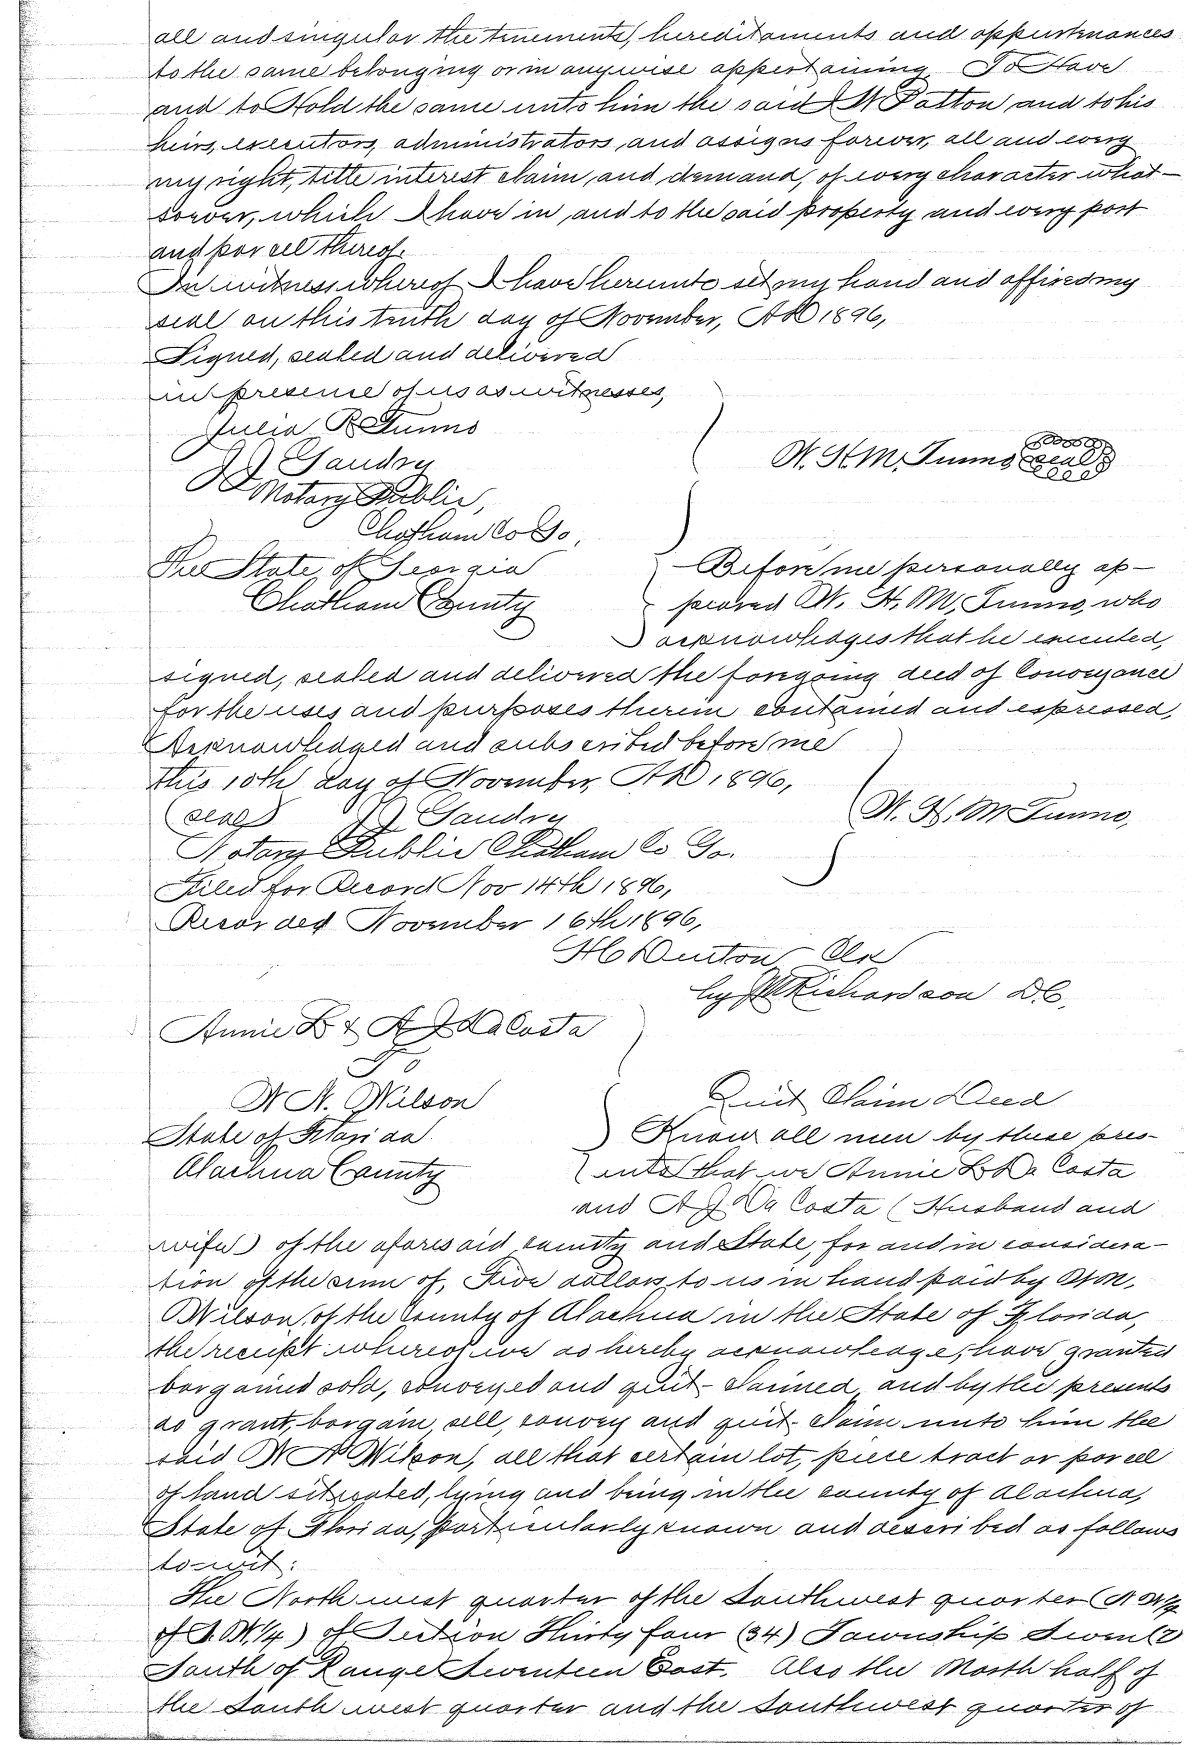 all and singular the tenements, hereditaments and appurtenances
to the same belonging or in anywise appertaining To Have
and to Hold the same unto him the said W Patton, and to his
heirs, executors, administrators, and assigns forever, all and every
my right, title interest claim, and demand, of every character what-
soever, which I have in, and to the said property and every part
and parcel thereof.
In witness whereof I have hereunto set my hand and affixed my
seal on this tenth day of November, AD 1896,
Signed, sealed and delivered
in presence of us as witnesses,
Julia R Tunno
Gaudry
Notary Public,
Chatham Co Ga,
W. H. M. Tunno seal
The State of Georgia
Chatham County
Before me personally ap-
peared W. H. M. Tunno, who
acknowledges that he executed,
signed, sealed and delivered the foregoing deed of Conveyance
for the uses and purposes therein contained and expressed,
Acknowledged and subscribed before me
this 10th day of November, AD 1896,
(seal) Gaudry
Notary Public Chatham Co Ga.
W. H. M Tunno,
Filed for Record Nov 14th 1896,
Recorded November 16th 1896,
H C Denton Clk
by Richardson D.C.
Annie L & A J DaCosta
To
W N. Wilson
State of Florida
Alachua County
Quit Claim Deed
Know all men by these pres-
ents that we Annie L Da Costa
and A J Da Costa (Husband and
wife) of the aforesaid county and State, for and in considera-
tion of the sum of, Five dollars to us in hand paid by W N.
Wilson, of the County of Alachua in the State of Florida,
the receipt whereof we do hereby acknowledge, have granted
bargained sold, conveyed and quit-claimed, and by the presents
do grant, bargain, sell, convey and quit-claim unto him the
said W N Wilson, all that certain lot, piece tract or parcel
of land situated, lying and being in the county of Alachua,
State of Florida, particularly known and described as follows
to-wit:
The North west quarter of the Southwest quarter (N W 1/4
of S.W.1/4) of Section Thirty four (34) Township Seven (7)
South of Range Seventeen East. Also the North half of
the South west quarter and the Southwest quarter of